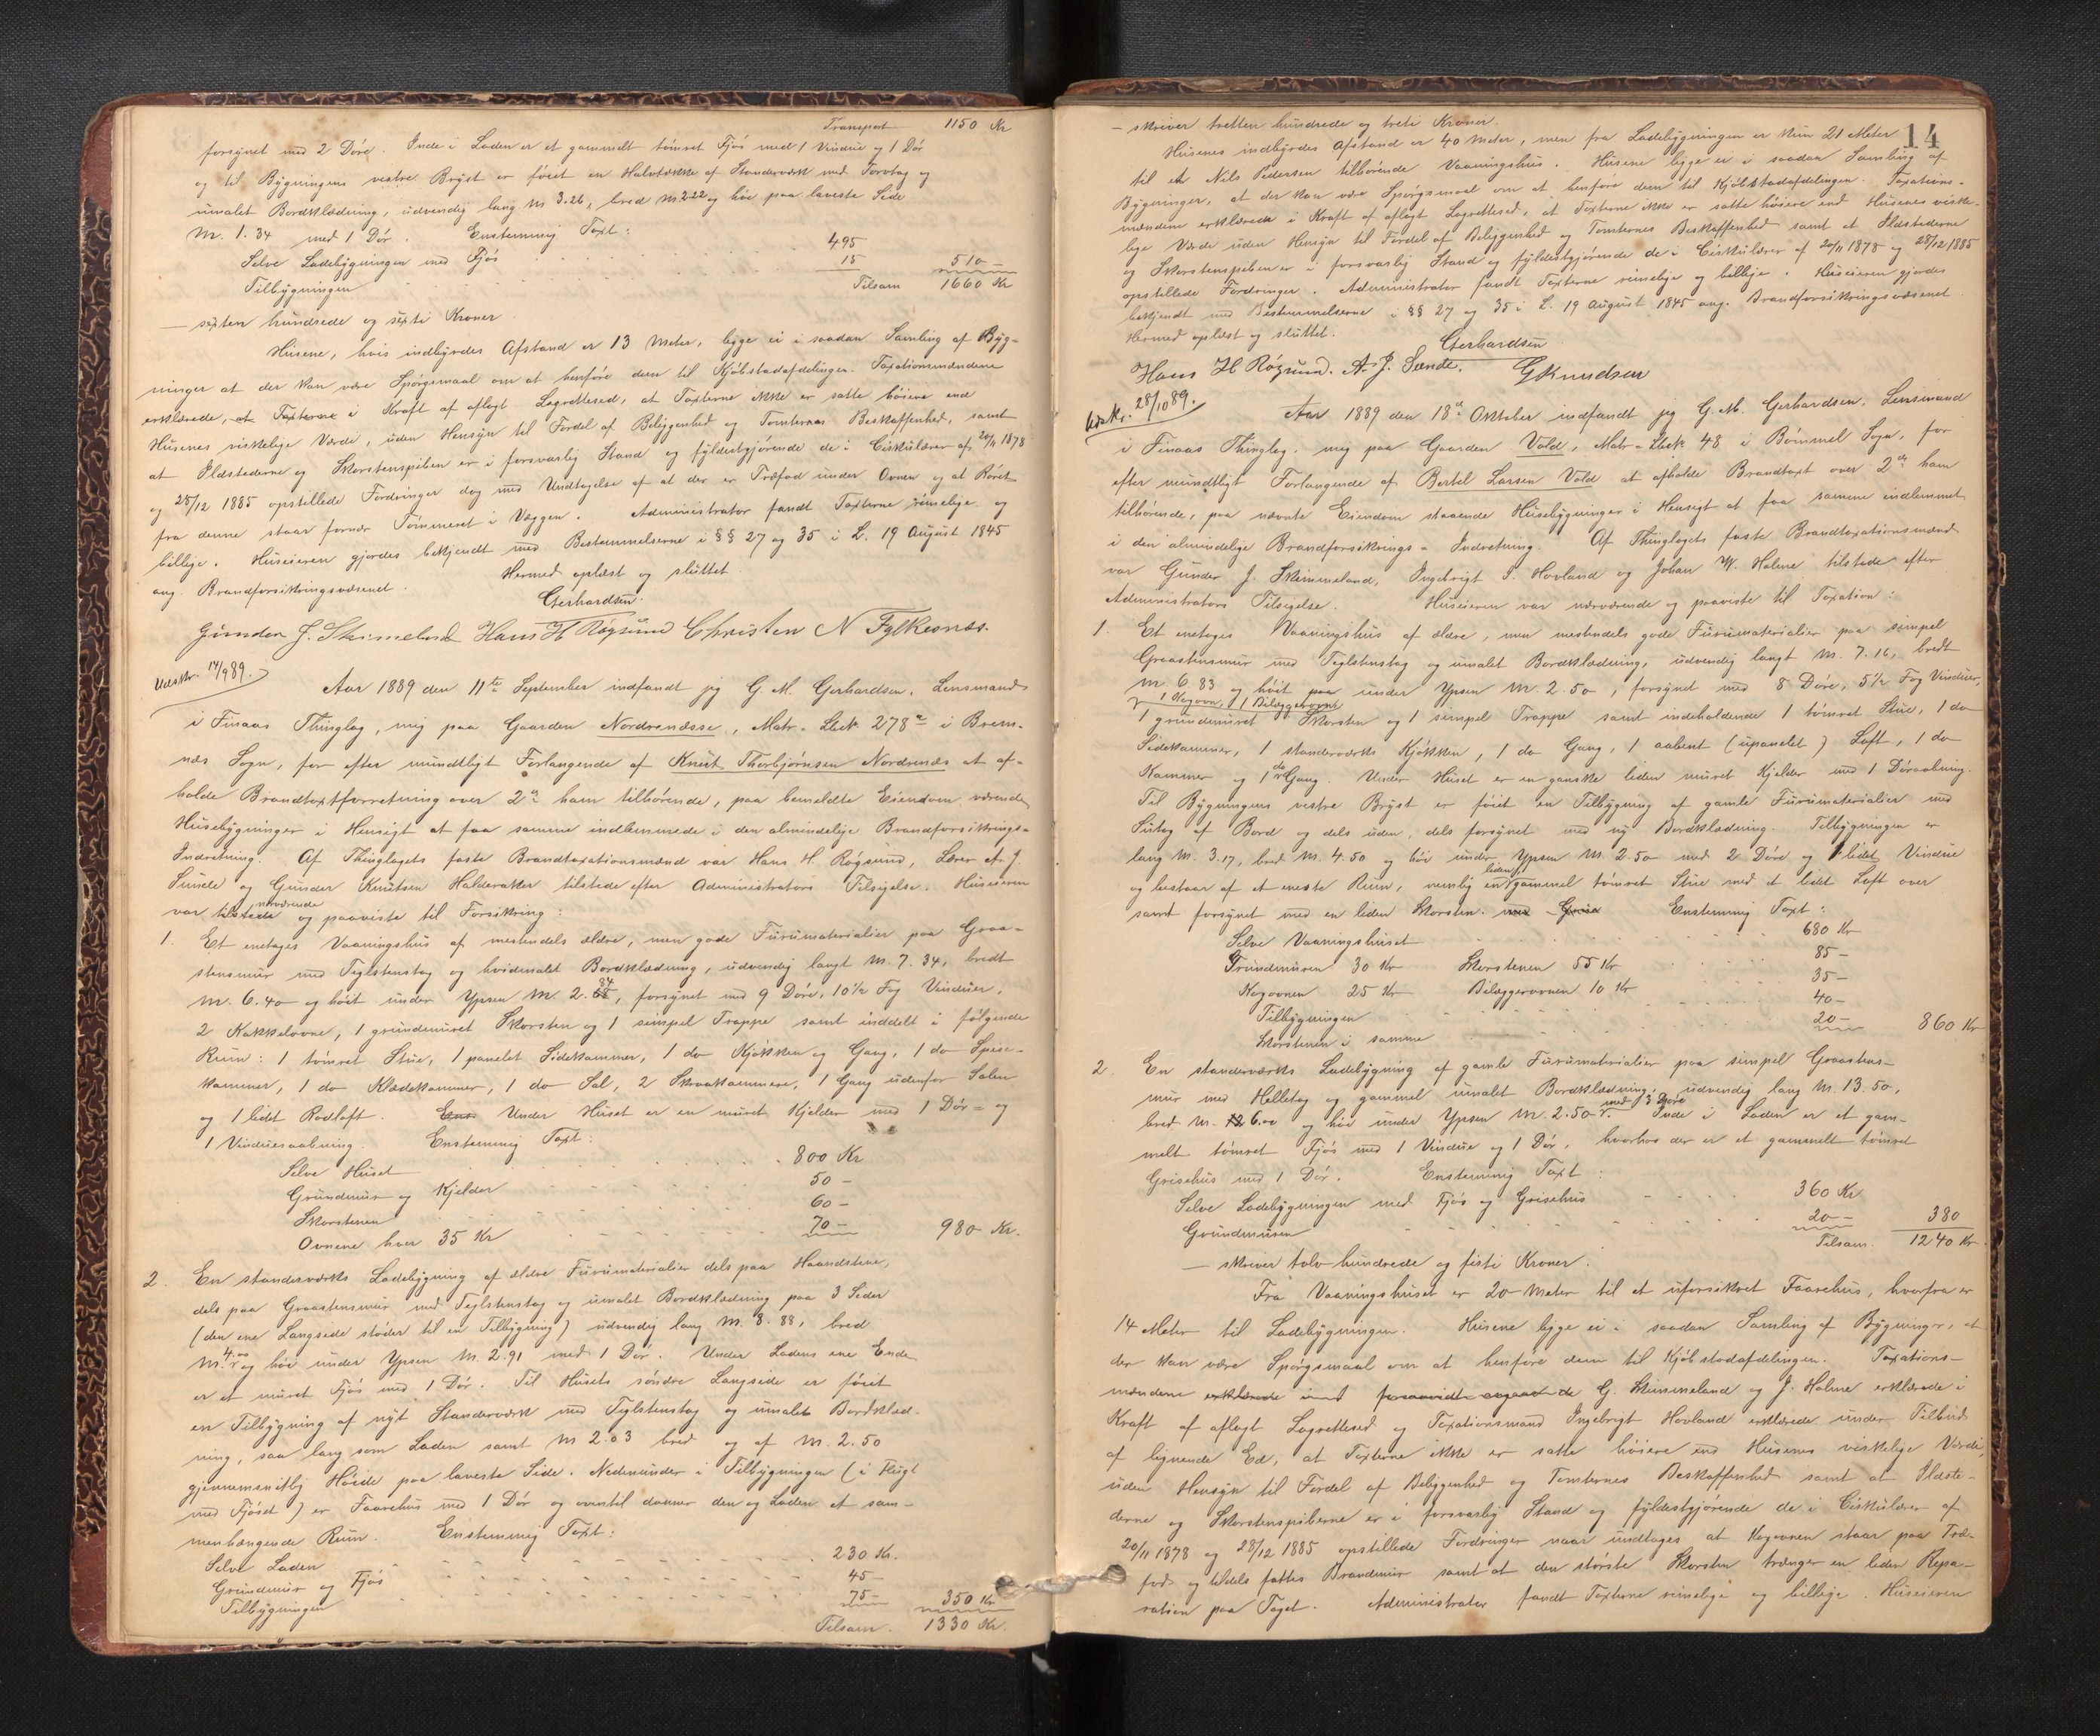 Transport 1150 Kr
forsynet med 2 Døre. Inde i Laden er et gammelt tømret Fjøs med 1 Vindue og 1 Dør
og til Bygningens vestre Bryst er føiet en Halvtække af Standerværk med Torvtag og
umalet Bordklædning, udvendig lang M 3.26, bred M 2.22 og høi paa laveste Side
M. 1.34 med 1 Dør. Enstemmig Taxt:
Selve Ladebygningen med Fjøs 495
Tilbygningen 15 510 -
Tilsam 1660 Kr
— sexten hundrede og sexti Kroner.
Husene, hvis indbyrdes Afstand er 13 Meter, ligge ei i saadan Samling af Byg-
ninger at der kan være Spørgsmaal om at henføre dem til Kjøbstadafdelingen. Taxationsmændene
erklærede, at Taxterne i Kraft af aflagt Lagrettesed, at Taxterne ikke er satte høiere end
Husenes virkelige Værde, uden Hensyn til Fordel af Beliggenhed og Tomternes Beskaffenhed, samt
at Ildstederne og Skorstenspiben er i forsvarlig Stand og fyldestgjørende de i Cirkulærer af 20/11 1878
og 28/12 1885 opstillede Fordringer dog med Undtagelse af at der er Træfod under Ovnen og at Røret
fra denne staar fornær Tømmeret i Væggen. Administrator fandt Taxterne rimelige og
billige. Huseieren gjordes bekjendt med Bestemmelserne i §§ 27 og 35 i L. 19 August 1845
ang. Brandforsikringsvæsenet. Hermed oplæst og sluttet.
Gerhardsen.
Gunder J. Skimeland Hans H Røgsund Christen N Fylkesnæs.
Udskr. 14/9 89.
Aar 1889 den 11te September indfandt jeg G. M. Gerhardsen, Lensmand
i Finaas Thinglag, mig paa Gaarden Nordrenæsse, Matr. Løck 278a i Brem-
næs Sogn, for efter mundtligt Forlangende af Knut Thorbjørnsen Nordrenæs at af-
holde Brandtaxtforretning over 2de ham tilhørende, paa bemeldte Eiendom værende
Husebygninger i Hensigt at faa samme indlemmede i den almindelige Brandforsikrings-
Indretning. Af Thinglagets faste Brandtaxationsmænd var Hans H. Røgsund, Lærer A. J.
Sunde og Gunder Knutsen Halderaker tilstede efter Administrators Tilsigelse. Huseieren
var tilstede nærværende og paaviste til Forsikring:
1. Et enetages Vaaningshus af mestendels ældre, men gode Furumaterialier paa Graa-
stensmur med Teglstenstag og hvidmalet Bordklædning, udvendig langt M. 7.34, bredt
M. 6.40 og høit under Ypsen M. 2.84, forsynet med 9 Døre, 10½ Fag Vinduer,
2 Kakkelovne, 1 grundmuret Skorsten og 1 simpel Trappe samt inddelt i følgende
Rum: 1 tømret Stue, 1 panelet Sidekammer, 1 do Kjøkken og Gang, 1 do Spise-
kammer, 1 do Klædekammer, 1 do Sal, 2 Skraakammere, 1 Gang udenfor Salen
og 1 lidet Rodloft. Ens Under Huset er en muret Kjelder med 1 Dør- og
1 Vinduesaabning. Enstemmig Taxt:
Selve Huset 800 Kr
Grundmur og Kjelder 50 -
Skorstenen 60 -
Ovnene hver 35 Kr 70 - 980 Kr.
2. En standerværks Ladebygning af ældre Furumaterialier dels paa Haandstene,
dels paa Graastensmur med Teglstenstag og umalet Bordklædning paa 3 Sider
(den ene Langside støder til en Tilbygning) udvendig lang M. 8.88, bred
M. 4.00 og høi under Ypsen M. 2.91 med 1 Dør. Under Ladens ene Ende
er et muret Fjøs med 1 Dør. Til Husets søndre Langside er føiet
en Tilbygning af nyt Standerværk med Teglstenstag og umalet Bordklæd-
ning, saa lang som Laden samt M 2.03 bred og af M. 2.50
gjennemsnitlig Høide paa laveste Side. Nedenunder i Tilbygningen (i Flugt
med Fjøset) er Faarehus med 1 Dør og oventil danner den og Laden et sam-
menhængende Rum. Enstemmig Taxt:
Selve Laden 230 Kr.
Grundmur og Fjøs 45 -
Tilbygningen 75 - 350 Kr
Tilsam. 1330 Kr.
14
— skriver tretten hundrede og treti Kroner.
Husenes indbyrdes Afstand er 40 Meter, men fra Ladebygningen er kun 21 Meter
til en Nils Pedersen tilhørende Vaaningshus. Husene ligge ei i saadan Samling af
Bygninger, at der kan være Spørgsmaal om at henføre dem til Kjøbstadafdelingen. Taxations-
mændene erklærede i Kraft af aflagt Lagrettesed, at Taxterne ikke er satte høiere end Husenes virke-
lige Værde uden Hensyn til Fordel af Beliggenhed og Tomternes Beskaffenhed samt at Ildstederne
og Skorstenspiben er i forsvarlig Stand og fyldestgjørende de i Cirkulærer af 20/11 1878 og 28/12 1885
opstillede Fordringer. Administrator fandt Taxterne rimelige og billige. Huseieren gjordes
bekjendt med Bestemmelserne i §§ 27 og 35 i L. 19 August 1845 ang. Brandforsikringsvæsenet.
Hermed oplæst og sluttet.
Gerhardsen
Hans H Røgsund. A. J. Sunde. G Knudsen
Udskr. 28/10 89.
Aar 1889 den 18de Oktober indfandt jeg G. M. Gerhardsen, Lensmand
i Finaas Thinglag, mig paa Gaarden Vold, Matr-Løck 48 i Bømmel Sogn, for
efter mundtligt Forlangende af Bertel Larsen Vold at afholde Brandtaxt over 2de ham
tilhørende, paa nævnte Eiendom staaende Husebygninger i Hensigt at faa samme indlemmet
i den almindelige Brandforsikrings-Indretning. Af Thinglagets faste Brandtaxationsmænd
var Gunder J. Skimmeland, Ingebrigt I. Hovland og Johan W. Halme tilstede efter
Administrators Tilsigelse. Huseieren var nærværende og paaviste til Taxation:
1. Et enetages Vaaningshus af ældre, men mestendels gode Furumaterialier paa simpel
Graastensmur med Teglstenstag og umalet Bordklædning, udvendig langt M. 7.16, bredt
M. 6.83 og høit paa under Ypsen M. 2.50, forsynet med 8 Døre, 5½ Fag Vinduer,
1 Kogovn, 1 Bilæggerovn
1 grundmuret Skorsten og 1 simpel Trappe samt indeholdende 1 tømret Stue, 1 do
Sidekammer, 1 standerværks Kjøkken, 1 do Gang, 1 aabent (upanelet) Loft, 1 do
Kammer og 1 do Gang. Under Huset er en ganske liden muret Kjelder med 1 Døraabning.
Til Bygningens vestre Bryst er føiet en Tilbygning af gamle Furumaterialier med
Sutag af Bord og dels uden, dels forsynet med ny Bordklædning. Tilbygningen er
lang M. 3.17, bred M. 4.50 og høi under Ypsen M. 2.50 med 2 Døre og 1 lidet Vindue
og bestaar af et eneste Rum, nemlig en liden gammel tømret Stue med et lidet Loft over
samt forsynet med en liden Skorsten. Enstemmig Taxt:
Selve Vaaningshuset 680 Kr
Grundmuren 30 Kr Skorstenen 55 Kr 85 -
Kogovnen 25 Kr Bilæggerovnen 10 Kr 35 -
Tilbygningen 40 -
Skorstenen i samme 20 - 860 Kr
2. En standerværks Ladebygning af gamle Furumaterialier paa simpel Graastens-
mur med Helletag og gammel umalet Bordklædning, udvendig lang M. 13.50,
bred M. 6.00 og høi under Ypsen M. 2.50 med 3 Døre. Inde i Laden er et gam-
melt tømret Fjøs med 1 Vindue og 1 Dør, hvorhos der er et gammelt tømret
Grisehus med 1 Dør. Enstemmig Taxt:
Selve Ladebygningen med Fjøs og Grisehus 360 Kr
Grundmuren 20 - 380
Tilsam. 1240 Kr
— skriver tolv hundrede og firti Kroner.
Fra Vaaningshuset er 20 Meter til et uforsikret Faarehus, hvorfra er
14 Meter til Ladebygningen. Husene ligge ei i saadan Samling af Bygninger, at
der kan være Spørgsmaal om at henføre dem til Kjøbstadafdelingen. Taxations-
mændene erklærede forsaavidt angaar de G. Skimmeland og J. Halme erklærede i
Kraft af aflagt Lagrettesed og Taxationsmand Ingebrigt Hovland erklærede under Tilbud
af lignende Ed, at Taxterne ikke er satte høiere end Husenes virkelige Værde,
uden Hensyn til Fordel af Beliggenhed og Tomternes Beskaffenhed samt at Ildste-
derne og Skorstenspiberne er i forsvarlig Stand og fyldestgjørende de i Cirkulærer af
20/11 1878 og 28/12 1885 opstillede Fordringer naar undtages at Kogovnen staar paa Træ-
fod og tildels fattes Brandmur samt at den største Skorsten trænger en liden Repa-
ration paa Taget. Administrator fandt Taxterne rimelige og billige. Huseieren